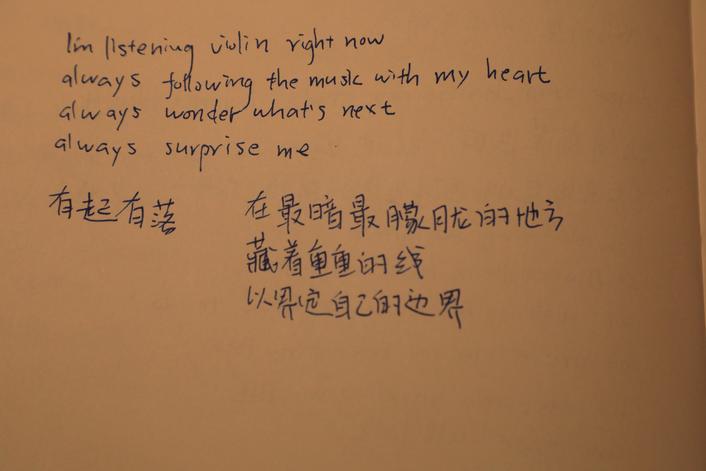 I'm listening violin right now
always following the music with my heart
always wonder what's next
always surprise me
有起有落
在最暗最朦胧的地方
藏着重重的线
以界定自己的边界